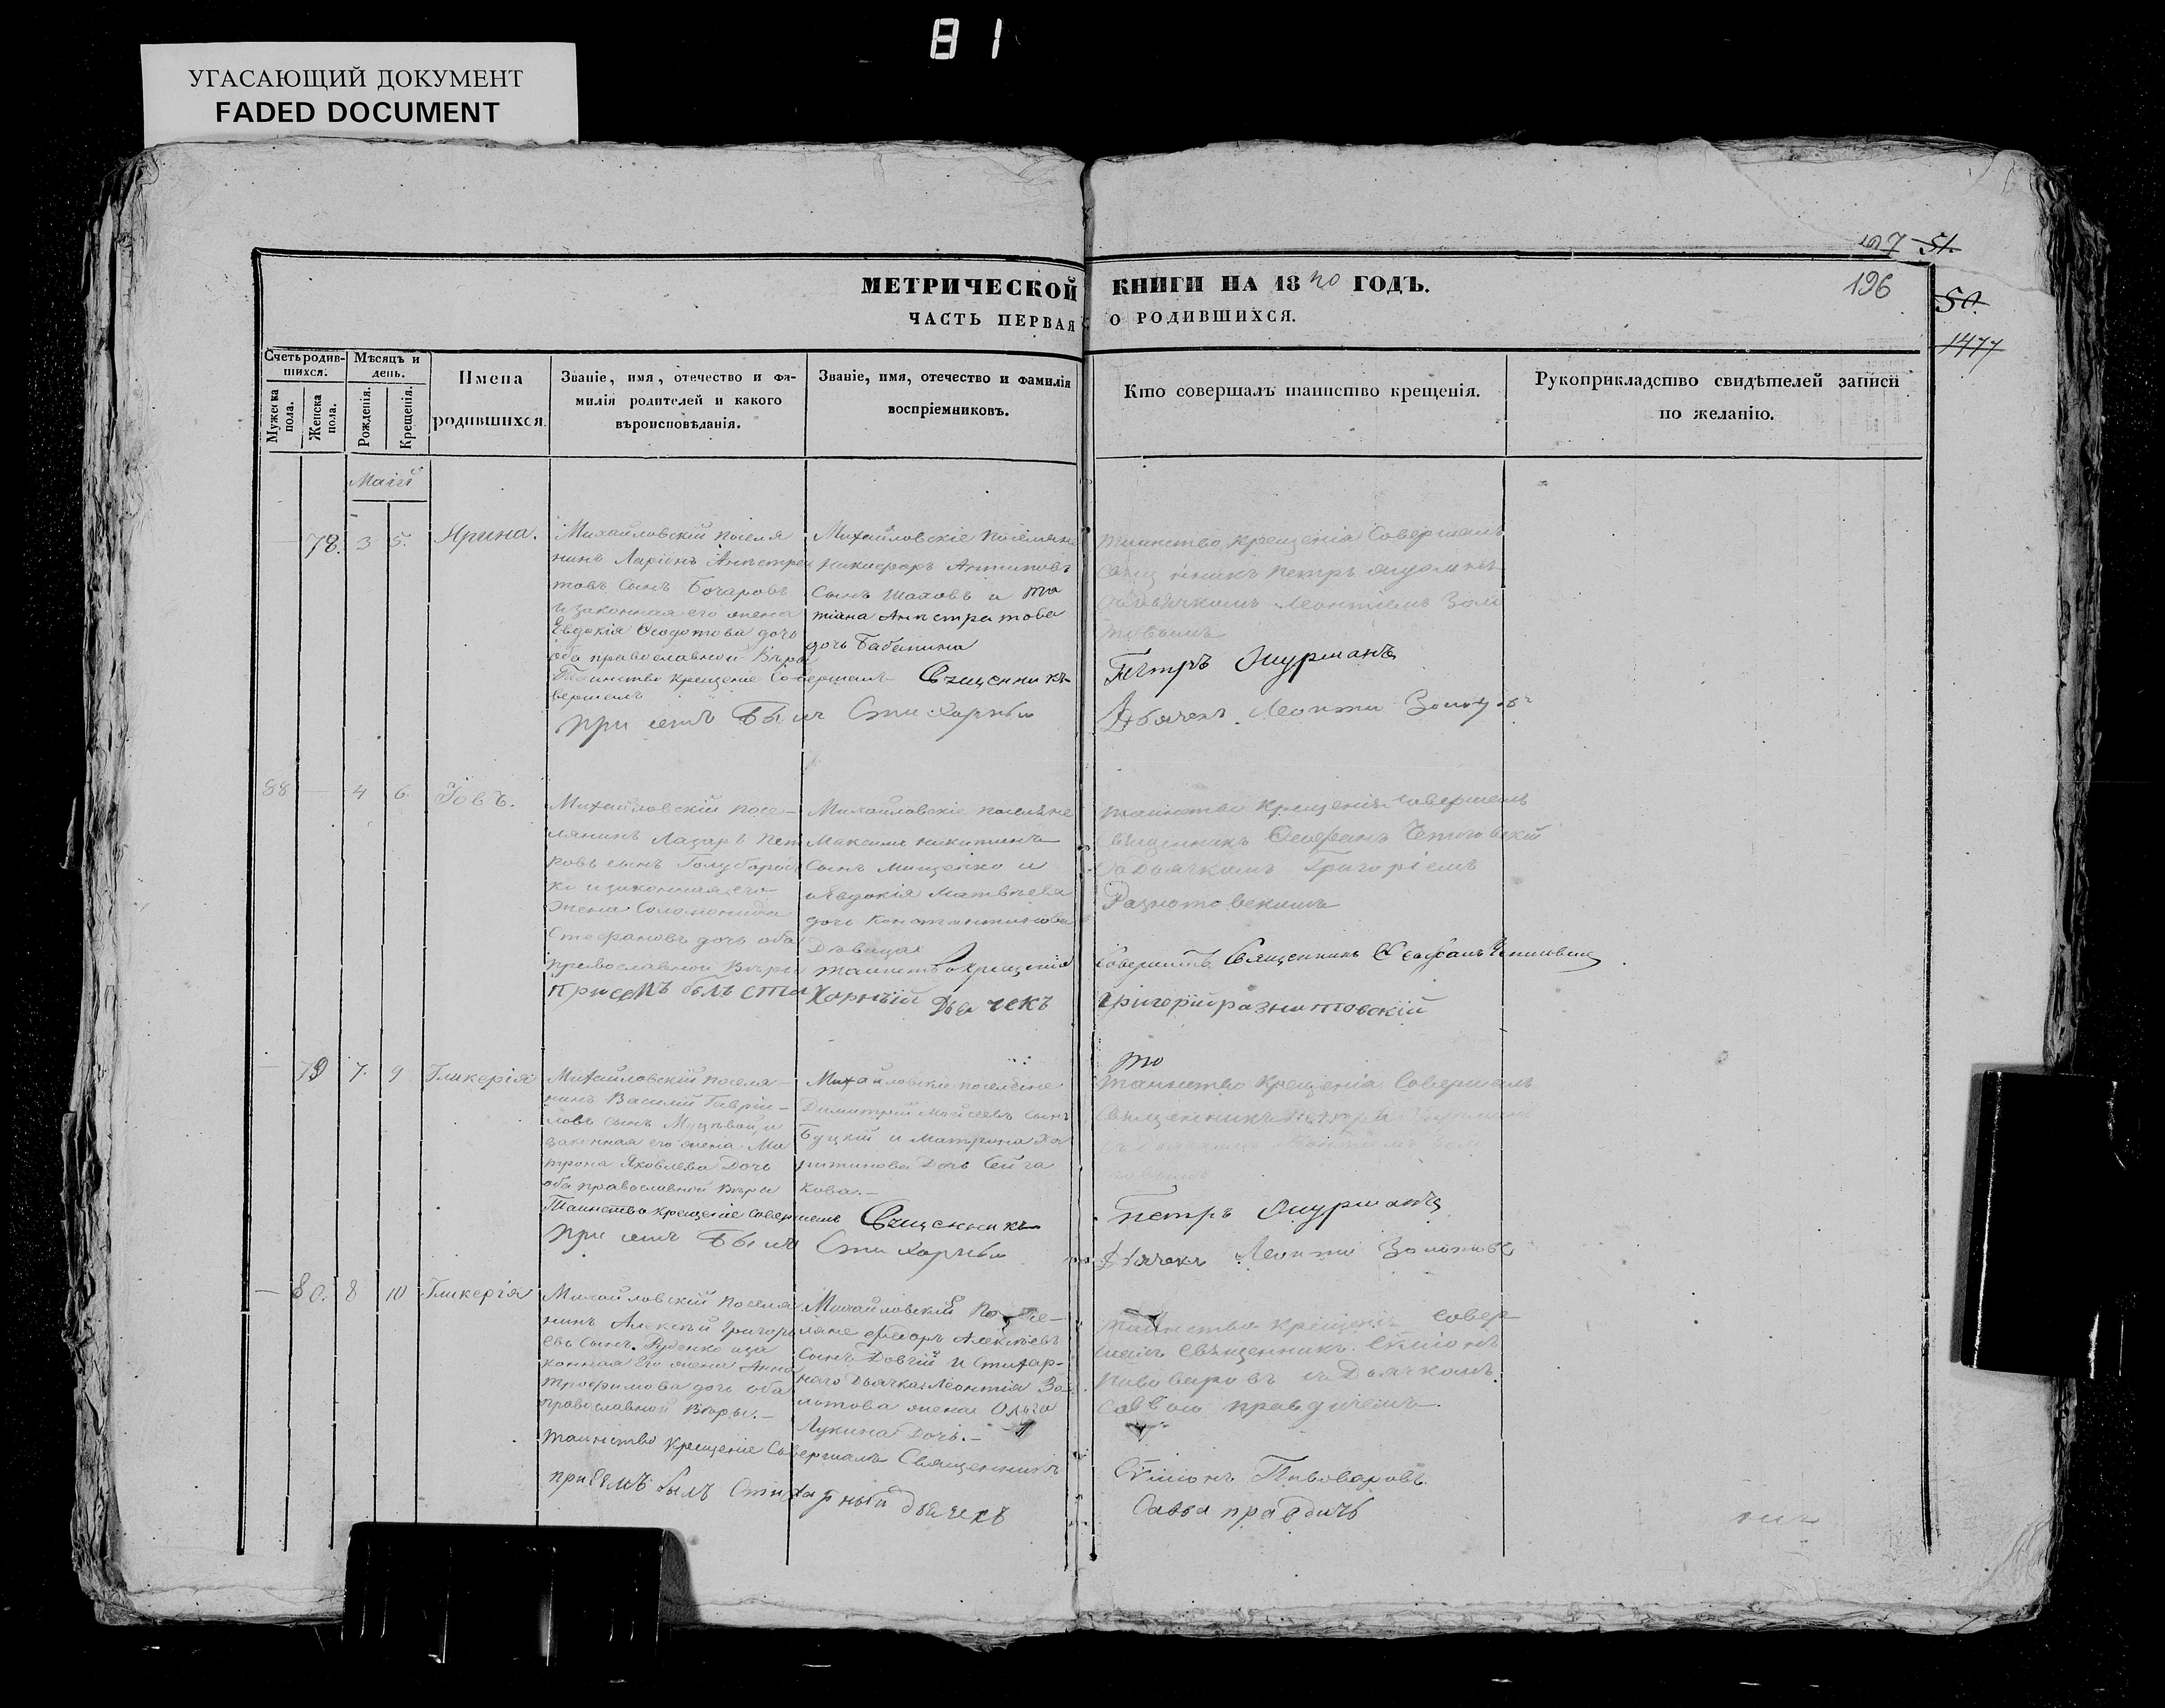 81
УГАСАЮЩИЙ ДОКУМЕНТ
FADED DOCUMENT
197 51.
196
50.
1477
МЕТРИЧЕСКОЙ КНИГИ НА 1840 ГОДЪ.
ЧАСТЬ ПЕРВАЯ О РОДИВШИХСЯ.
Счетъ родившихся.
Мужеска пола.
Женска пола.
Мѣсяцъ и день.
Рожденія.
Крещенія.
Имена родившихся.
Званіе, имя, отечество и фамилія родителей и какого вѣроисповѣданія.
Званіе, имя, отечество и фамилія воспріемниковъ.
Кто совершалъ таинство крещенія.
Рукоприкладство свидѣтелей записи по желанію.
Маій
78. 3 5. Ирина.
Михайловскій поселя
нинъ Ларіонъ Анистра
товъ сынъ Бочаровъ
и законная его жена
Евдокія Ѳеодотова дочь
оба православной Вѣры
Михайловскіе поселяне
Никифоръ Антиповъ
сынъ Шаховъ и Та
тіана Анистратова
дочь Бабанина
таинство крещенія Совершалъ
Петръ
Леонтіемъ Золо
товымъ
Таинство крещеніе Совершалъ Священникъ
вершалъ
Петръ
при семъ былъ Стихарный
Дьячекъ Леонтій Золотовъ
88 — 4 6. Іовъ.
Михайловскій посе-
лянинъ Лазарь Пет
ровъ сынъ Голубород
ко и законная его
жена Соломонида
Стефановъ дочь оба
православной Вѣры
Михайловскіе поселяне
Максимъ Никитинъ
Сынъ Мищенко и
Евдокія Матвѣева
дочь Константинова
Дѣвица
таинство крещенія Совершалъ
Священникъ
съ Дьячкомъ Григоріемъ
Разнотовскимъ
таинство крещенія
совершилъ Священникъ
присемъ былъ стихарный Дьячекъ
григорій разнотовскій
— 79 7. 9 Гликерія
Михайловскій поселя-
нинъ Василій Гавріи-
ловъ сынъ
законная его жена Ма
трона Яковлева Дочь
оба православной Вѣры
Михайловскіе поселяне
Димитрій Мойсеевъ сынъ
Буцкій и Матрона Ха
ритинова Дочь
кова.—
то
таинство крещенія Совершалъ
Священникъ Петръ
Таинство крещеніе совершалъ Священникъ
Петръ
при семъ былъ Стихарный
Дьячекъ Леонтій Золотовъ
— 80. 8 10 Гликерія
Михайловскій поселя
нинъ Алексѣй Григорь
евъ сынъ Руденко и за
конная его жена Анна
Трофимова дочь оба
православной Вѣры.—
Михайловскіе посе-
ляне Ѳедоръ Алексѣевъ
сынъ Довгій и стихар-
наго Дьячка Леонтія Зо-
лотова жена Ольга
Лукина Дочь.—
таинство крещенія совер
шалъ Священникъ Сѵміонъ
Пивоваровъ съ Дьячкомъ
Саввою правдичемъ.
таинство крещеніе Совершалъ Священникъ
Сѵміонъ Пивоваровъ
присемъ былъ Стихарный дьячекъ
Савва правдичь